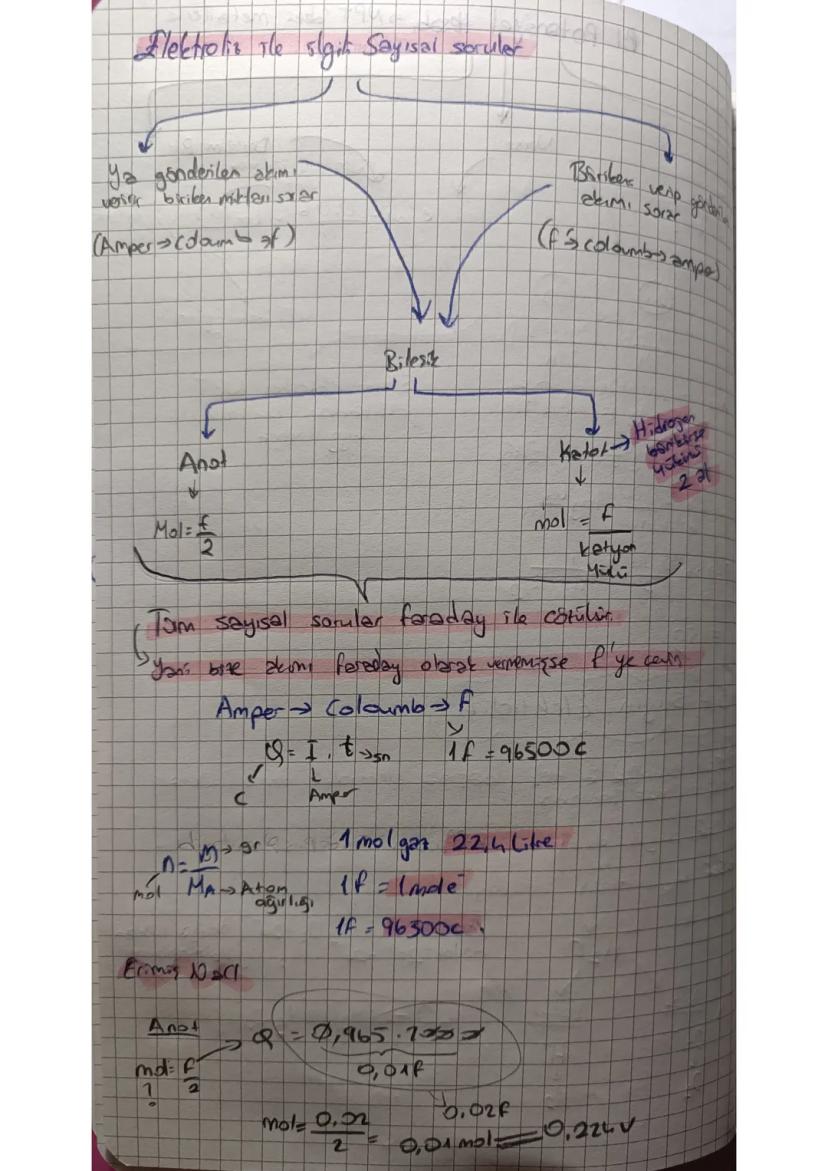 Elektroliz ile ilgili Sayısal sorular
Ya gönderilen akımı
verir biriken miktarı sorar
(Amper → Coloumb → f)
Biriken verip gönderilen
akımı sorar
(f → coloumb → amper)
Bileşik
Anot
Katot → Hidrogen
yükünü
2 al
Mol = f/2
mol = f/katyon yükü
Tüm sayısal sorular faraday ile çözülür.
Yani bize akımı faraday olarak vermemişse f'ye çevir.
Amper → Coloumb → f
Q = I . t → sn
1f = 96500c
C
Amper
n = m → gr
mol MA → Atom
ağırlığı
1 mol gaz 22,4 Litre
1f = 1 mol e⁻
1f = 96500c.
Erimiş NaCl
Anot
mol = f/2
?
Q = 0,965 .
0,01f
0.02f
mol = 0.02/2 = 0,01 mol = 0,224 V